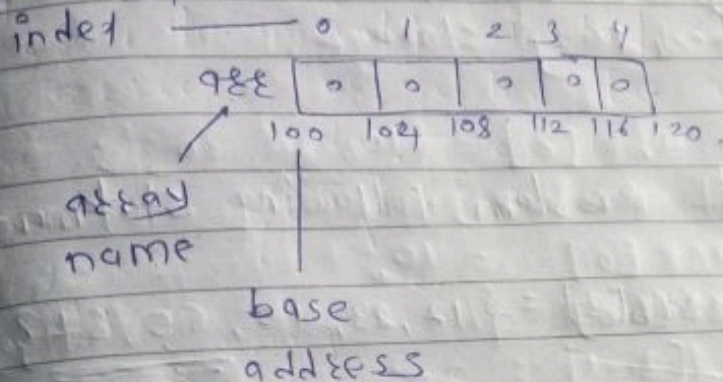 index 0 1 2 3 4
arr 0 0 0 0 0
100 104 108 112 116 120
array
name
base
address